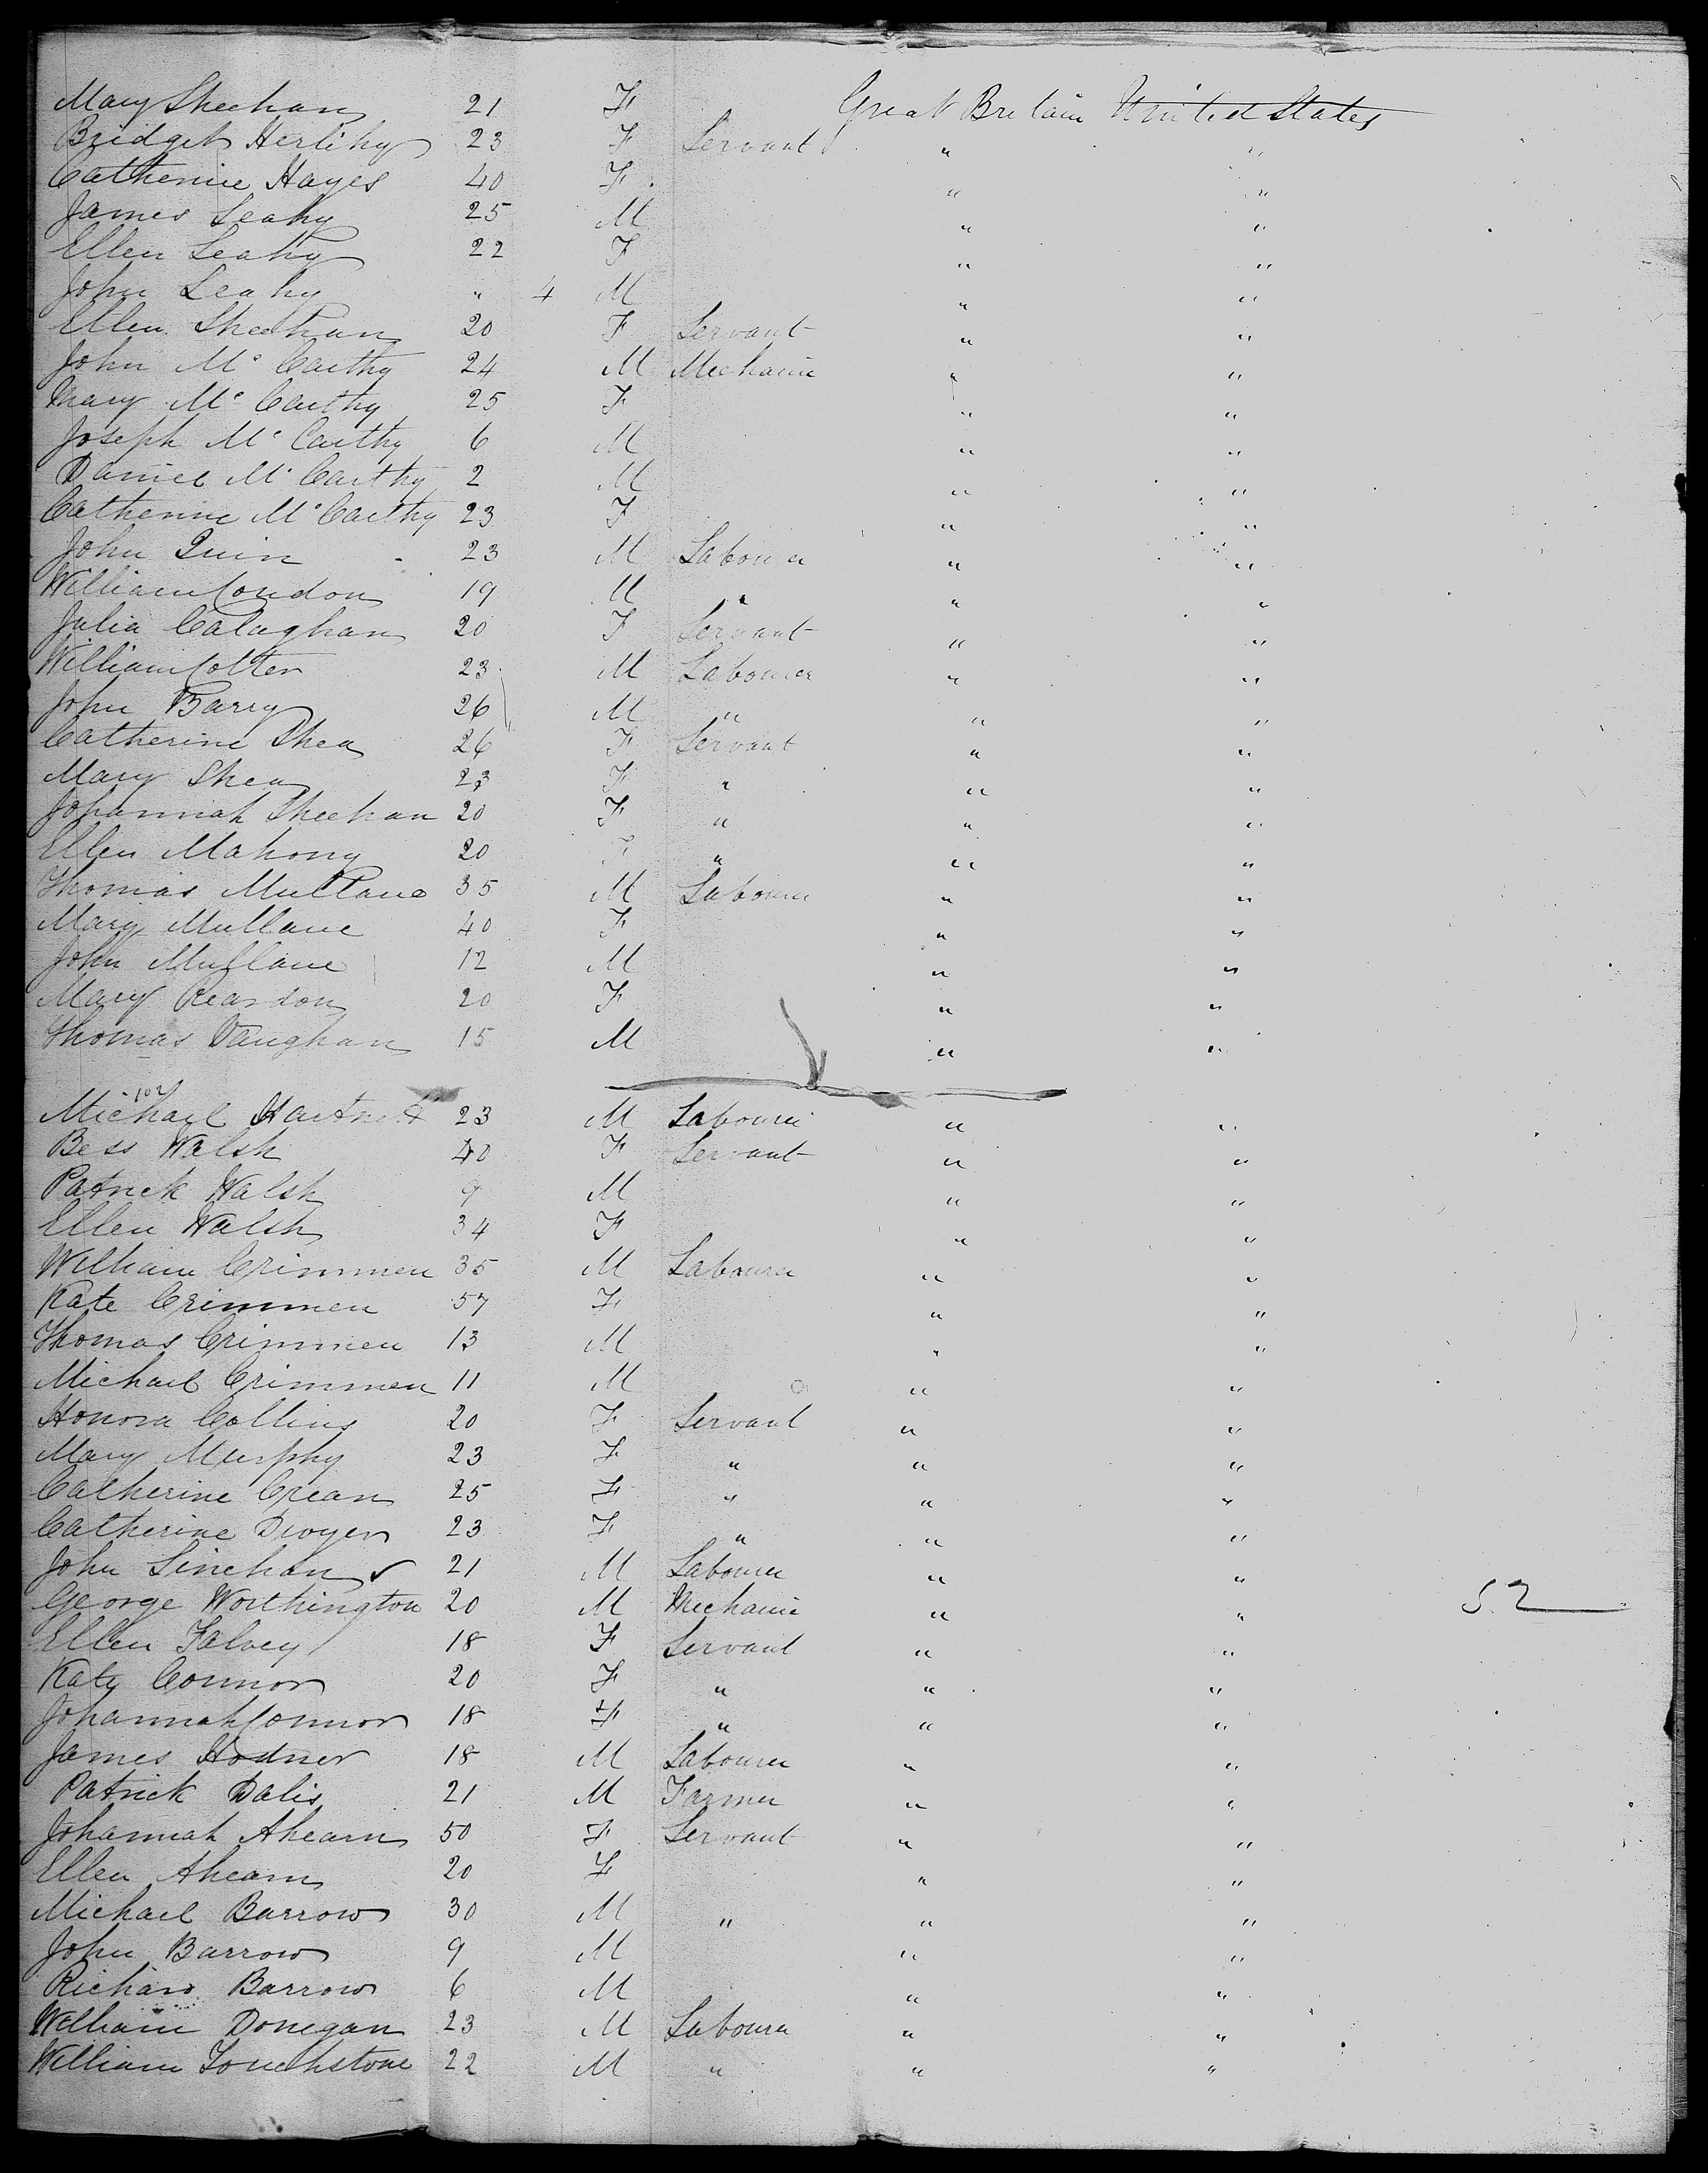 Mary Sheehan 21 F Great Britain United States
Bridget Herlihy 23 F Servant " "
Catherine Hayes 40 F " "
James Leahy 25 M " "
Ellen Leahy 22 F " "
John Leahy " 4 M " "
Ellen Sheehan 20 F Servant " "
John Mc Carthy 24 M Mechanic " "
Mary Mc Carthy 25 F " "
Joseph Mc Carthy 6 M " "
Daniel Mc Carthy 2 M " "
Catherine Mc Carthy 23 F " "
John Quin 23 M Labourer " "
William Condon 19 M " " "
Julia Calaghan 20 F Servant " "
William Cotter 23 M Labourer " "
John Barry 26 M " " "
Catherine Shea 26 F Servant " "
Mary Shea 23 F " " "
Johannah Sheehan 20 F " " "
Ellen Mahony 20 F " " "
Thomas Mullane 35 M Labourer " "
Mary Mullane 40 F " "
John Mullane 12 M " "
Mary Reardon 20 F " "
Thomas Vaughan 15 M " "
102
Michael Hartnett 23 M Labourer " "
Bess Walsh 40 F Servant " "
Patrick Walsh 9 M " "
Ellen Walsh 34 F " "
William Crimmen 35 M Labourer " "
Kate Crimmen 57 F " "
Thomas Crimmen 13 M " "
Michael Crimmen 11 M " "
Honora Collins 20 F Servant " "
Mary Murphy 23 F " " "
Catherine Crean 25 F " " "
Catherine Dwyer 23 F " " "
John Linehan ✓ 21 M Labourer " "
George Worthington 20 M Mechanic " " 52
Ellen Falvey 18 F Servant " "
Katy Connor 20 F " " "
Johannah Connor 18 F " " "
James Hodner 18 M Labourer " "
Patrick Dalis 21 M Farmer " "
Johannah Ahearn 50 F Servant " "
Ellen Ahearn 20 F " "
Michael Barrow 30 M " " "
John Barrow 9 M " "
Richard Barrow 6 M " "
William Donegan 23 M Labourer " "
William Touchstone 22 M " " "